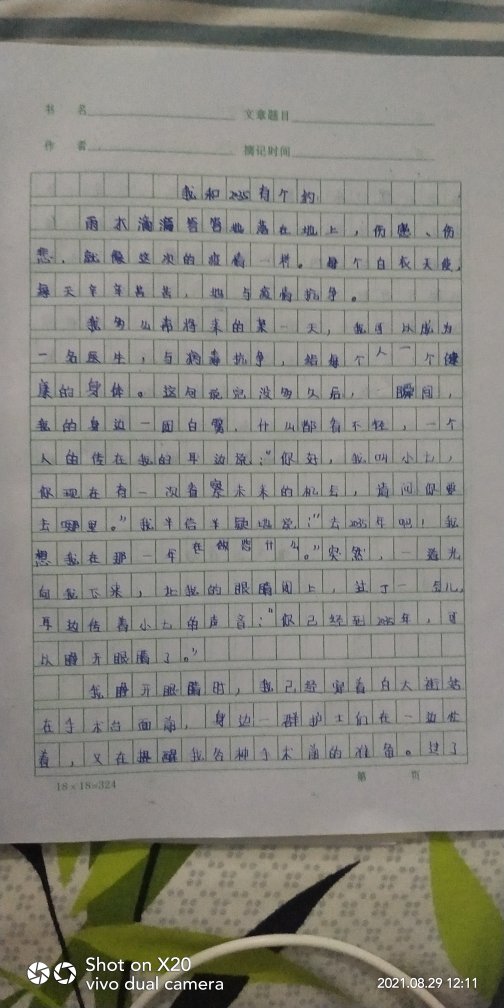 书 名 文章题目
作 者 摘记时间
我和2035有个约
雨水滴滴答答地落在地上，伤感、伤
悲，就像这次的疫情一样。每个白衣天使，
每天辛辛苦苦，地与疫情抗争。
我多么希将来的某一天，我可以成为
一名医生，与病毒抗争，给每个人一个健
康的身体。这句说完没多久后，一瞬间，
我的身边一团白雾，什么都看不轻，一个
人的传在我的耳边说："你好，我叫小七，
你现在有一次省察未来的机会，请问你要
去哪里。"我半信半疑地说："去2035年吧！我
想我在那一年在做些什么。"突然，一道光
向我飞来，让我的眼睛闭上，过了一会儿，
耳边传着小七的声音："你已经到2035年，可
以睁开眼睛了。"
我睁开眼睛时，我已经穿着白大褂站
在手术台面前，身边一群护士们在一边忙
着，又在提醒我各种手术前的准备。过了
18×18=324 第 页
Shot on X20
vivo dual camera
2021.08.29 12:11